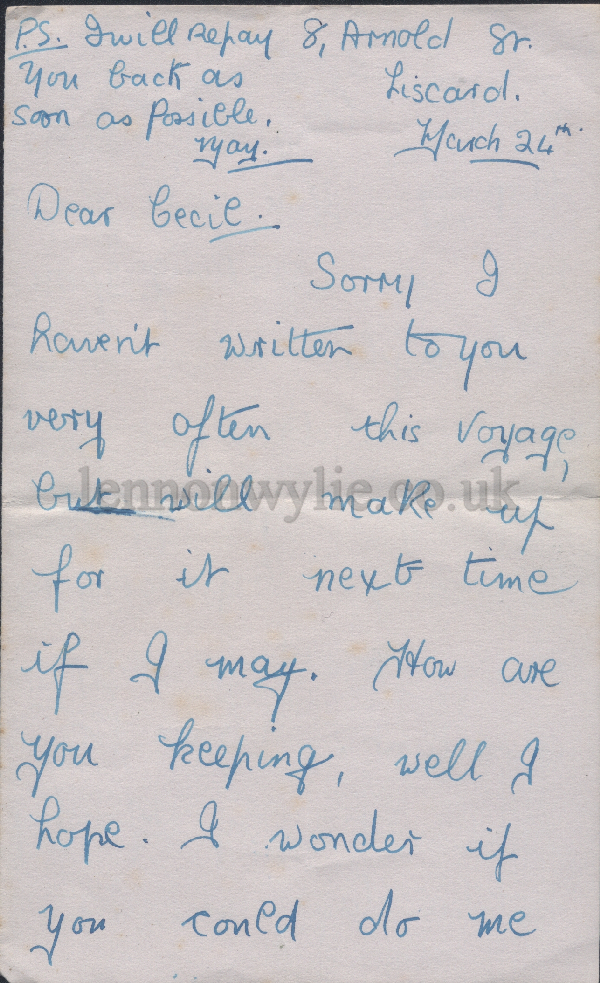 P.S. I will Repay
You back as
soon as Possible.
May.
8, Arnold Gr.
Liscard.
March 24th.
Dear Cecil.
Sorry I
haven't written to you
very often this voyage,
but will make up
for it next time
if I may. How are
you keeping, well I
hope. I wonder if
you could do me
lennonwylie.co.uk